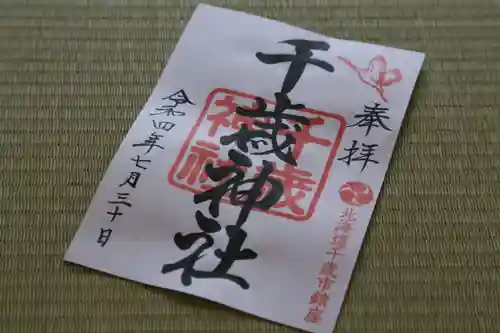 奉拝
千歳神社
千歳神社
北海道千歳市鎮座
令四年七月三十日